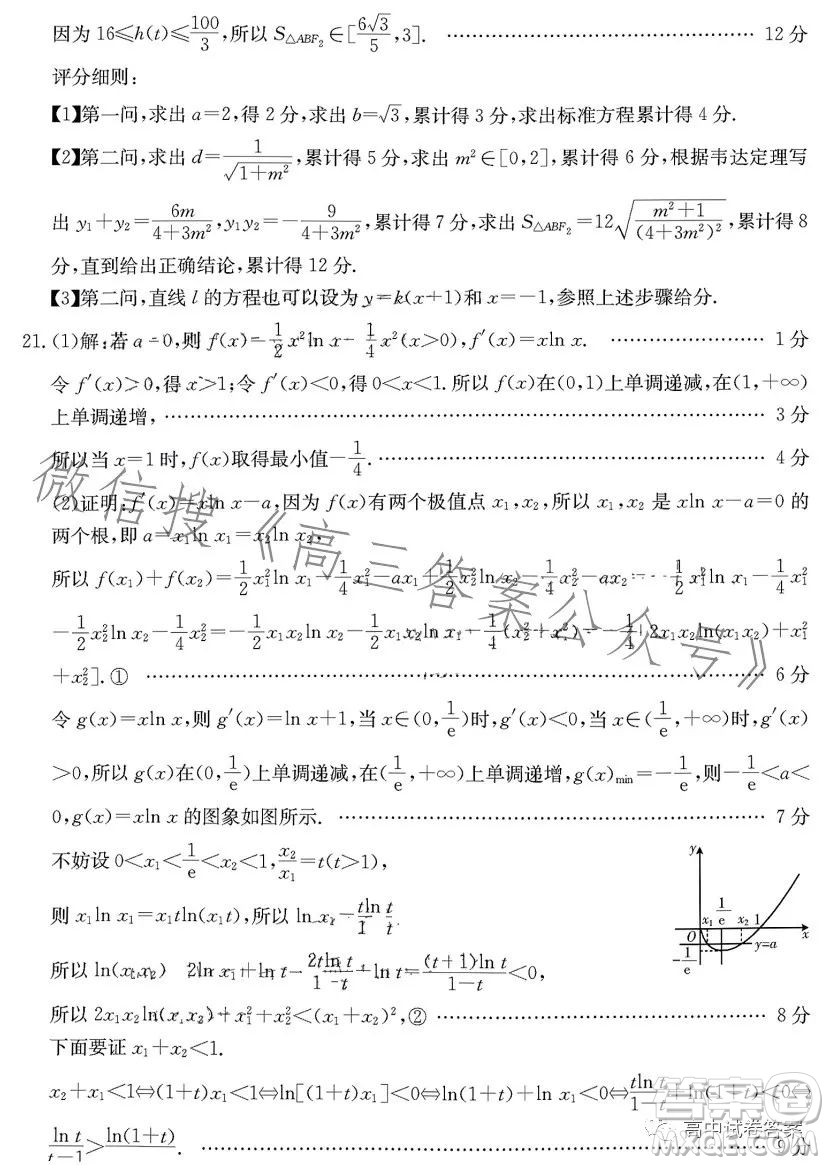 因为 16≤h(t)≤100/3,所以 S△ABF₂∈[6√3/5,3]. ………… 12 分
评分细则:
【1】第一问,求出 a=2,得 2 分,求出 b=√3,累计得 3 分,求出标准方程累计得 4 分.
【2】第二问,求出 d=1/√(1+m²),累计得 5 分,求出 m²∈[0,2],累计得 6 分,根据韦达定理写
出 y₁+y₂=6m/(4+3m²),y₁y₂=−9/(4+3m²),累计得 7 分,求出 S△ABF₂=12√((m²+1)/(4+3m²)²),累计得 8
分,直到给出正确结论,累计得 12 分.
【3】第二问,直线 l 的方程也可以设为 y=k(x+1)和 x=−1,参照上述步骤给分.
21. (1)解:若 a=0,则 f(x)=1/2 x²ln x−1/4 x²(x>0),f′(x)=xln x. ………… 1 分
令 f′(x)>0,得 x>1;令 f′(x)<0,得 0<x<1.所以 f(x)在(0,1)上单调递减,在(1,+∞)
上单调递增, ………… 3 分
所以当 x=1 时,f(x)取得最小值−1/4. ………… 4 分
(2)证明:f′(x)=xln x−a,因为 f(x)有两个极值点 x₁,x₂,所以 x₁,x₂ 是 xln x−a=0 的
两个根,即 a=x₁ln x₁=x₂ln x₂,
所以 f(x₁)+f(x₂)=1/2 x₁²ln x₁−1/4 x₁²−ax₁+1/2 x₂²ln x₂−1/4 x₂²−ax₂=−1/2 x₁²ln x₁−1/4 x₁²
−1/2 x₂²ln x₂−1/4 x₂²=−1/2 x₁x₂ln x₂−1/2 x₁x₂ln x₁−1/4(x₂²+x₁²)=−1/4[2x₁x₂ln(x₁x₂)+x₁²
+x₂²].① ………… 6 分
令 g(x)=xln x,则 g′(x)=ln x+1,当 x∈(0,1/e)时,g′(x)<0,当 x∈(1/e,+∞)时,g′(x)
>0,所以 g(x)在(0,1/e)上单调递减,在(1/e,+∞)上单调递增,g(x)min=−1/e,则−1/e<a<
0,g(x)=xln x 的图象如图所示. ………… 7 分
不妨设 0<x₁<1/e<x₂<1,x₂/x₁=t(t>1),
则 x₁ln x₁=x₁tln(x₁t),所以 ln x₁=tln t/(1−t).
所以 ln(x₁x₂)=2ln x₁+ln t=2tln t/(1−t)+ln t=(t+1)ln t/(1−t)<0,
所以 2x₁x₂ln(x₁x₂)+x₁²+x₂²<(x₁+x₂)²,② ………… 8 分
下面要证 x₁+x₂<1.
x₂+x₁<1⇔(1+t)x₁<1⇔ln[(1+t)x₁]<0⇔ln(1+t)+ln x₁<0⇔tln t/(1−t)+ln(1+t)<0⇔
ln t/(t−1)>ln(1+t)/t. ………… 9 分
y
O
x₁
1/e
x₂
1
x
y=a
−1/e
微信搜《高三答案公众号》
答案圈
MXQE.COM
高中试卷答案